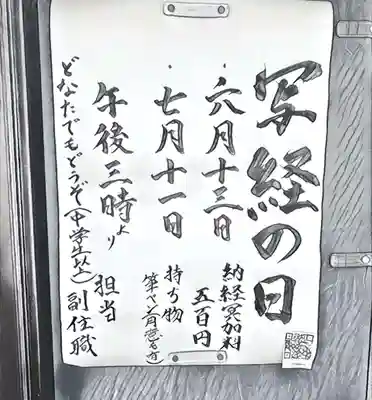 写経の日
・六月十三日
・七月十一日
午後三時より
どなたでもどうぞ(中学生以上)
納経冥加料
五百円
持ち物
担当
副住職